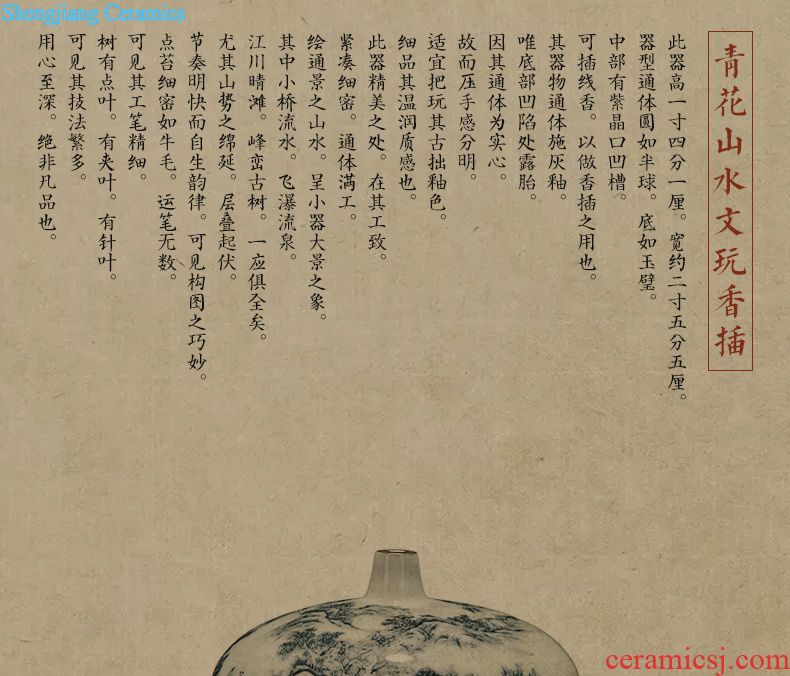 Shengjiang Ceramics
青花山水文玩香插
此器高一寸四分一厘。宽约二寸五分五厘。
器型通体圆如半球。底如玉璧。
中部有紫晶口凹槽。
可插线香。以做香插之用也。
其器物通体施灰釉。
唯底部凹陷处露胎。
因其通体为实心。
故而压手感分明。
适宜把玩其古拙釉色。
细品其温润质感也。
此器精美之处。在其工致。
紧凑细密。通体满工。
绘通景之山水。呈小器大景之象。
其中小桥流水。飞瀑流泉。
江川晴滩。峰峦古树。一应俱全矣。
尤其山势之绵延。层叠起伏。
节奏明快而自生韵律。可见构图之巧妙。
点苔细密如牛毛。运笔无数。
可见其工笔精细。
树有点叶。有夹叶。有针叶。
可见其技法繁多。
用心至深。绝非凡品也。
ceramicsj.com